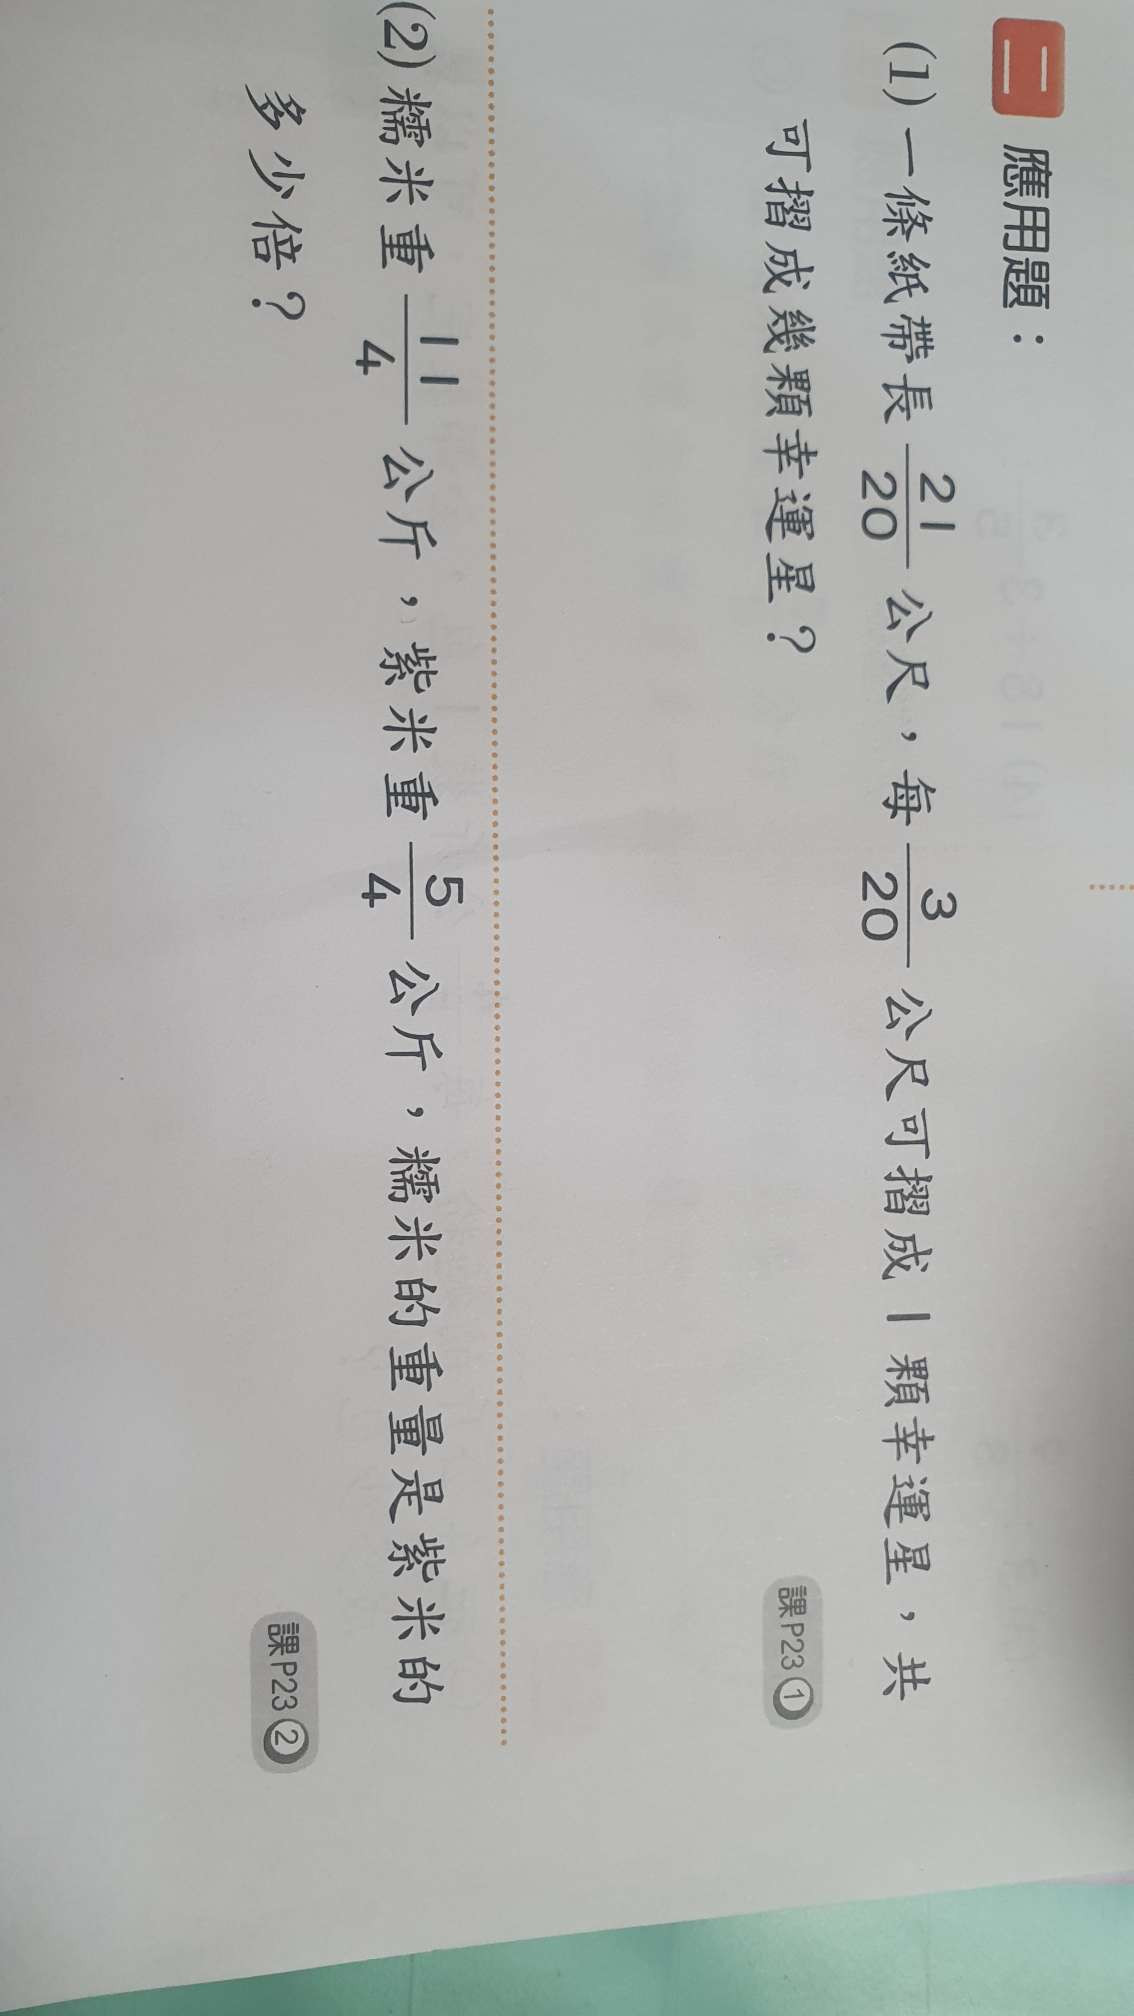 二 應用題：
(1) 一條紙帶長 21/20 公尺，每 3/20 公尺可摺成 1 顆幸運星，共
可摺成幾顆幸運星？
課P23①
(2) 糯米重 11/4 公斤，紫米重 5/4 公斤，糯米的重量是紫米的
多少倍？
課P23②